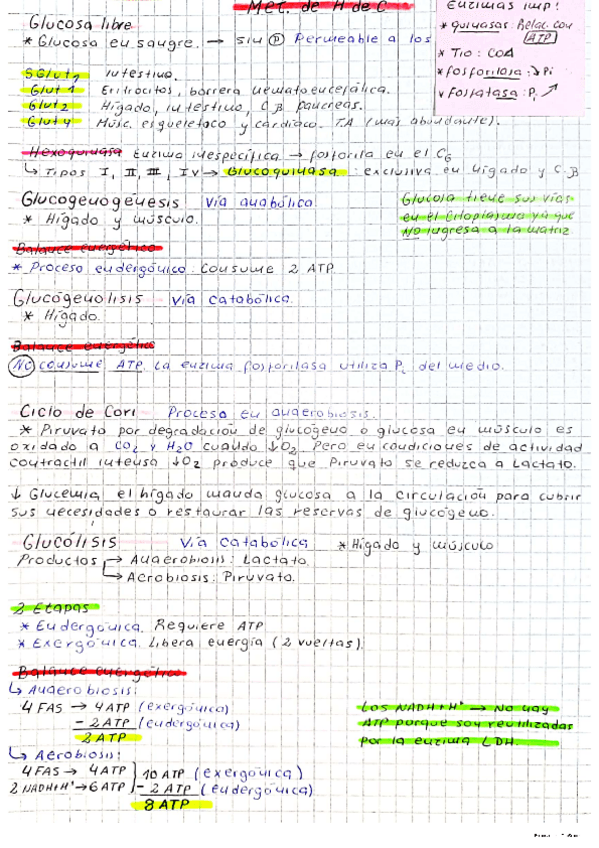 Met. de H de C
Enzimas imp:
* quinasas: Relac. con
ATP
* Tio: COA
* fosforilasa: Pi
* fosfatasa: Pi
Glucosa libre
* Glucosa en sangre. → sin P Permeable a los
SGlut1 Intestino.
Glut 1 Eritrocitos, barrera hematoencefálica.
Glut 2 Hígado, intestino, C.B pancreas.
Glut 4 Músc. esqueletaco y cardíaco. T.A (mas abundante).
Hexoquinasa Enzima inespecífica → fosforila en el C6
↳ Tipos I, II, III, IV → Glucoquinasa : exclusiva en Hígado y C.B
Glucogenogénesis Vía anabólica.
* Hígado y músculo.
Glucosa tiene sus vías
en el citoplasma ya que
NO ingresa a la matriz
Balance energético
* Proceso endergónico. Consume 2 ATP.
Glucógenolisis Vía catabólica.
* Hígado.
Balance energético
NO consume ATP. La enzima fosforilasa utiliza Pi del medio.
Ciclo de Cori Proceso en anaerobiosis.
* Piruvato por degradación de glucógeno o glucosa en músculo es
oxidado a CO2 y H2O cuando ↓O2 Pero en condiciones de actividad
contractil intensa ↓O2 produce que Piruvato se reduzca a Lactato.
↓ Glucemia, el hígado manda glucosa a la circulación para cubrir
sus necesidades o restaurar las reservas de glucógeno.
Glucólisis Vía catabólica * Hígado y músculo
Productos → Anaerobiosis: Lactato.
→ Aerobiosis: Piruvato.
2 Etapas
* Endergónica. Requiere ATP
* Exergónica. Libera energía (2 vueltas).
Balance energético
↳ Anaerobiosis:
4 FAS → 4 ATP (exergónica)
- 2 ATP (endergónica)
2 ATP
Los NADH+H+ → No hay
ATP porque son reutilizadas
por la enzima LDH.
↳ Aerobiosis:
4 FAS → 4 ATP } 10 ATP (exergónica)
2 NADH+H+ → 6 ATP - 2 ATP (endergónica)
8 ATP